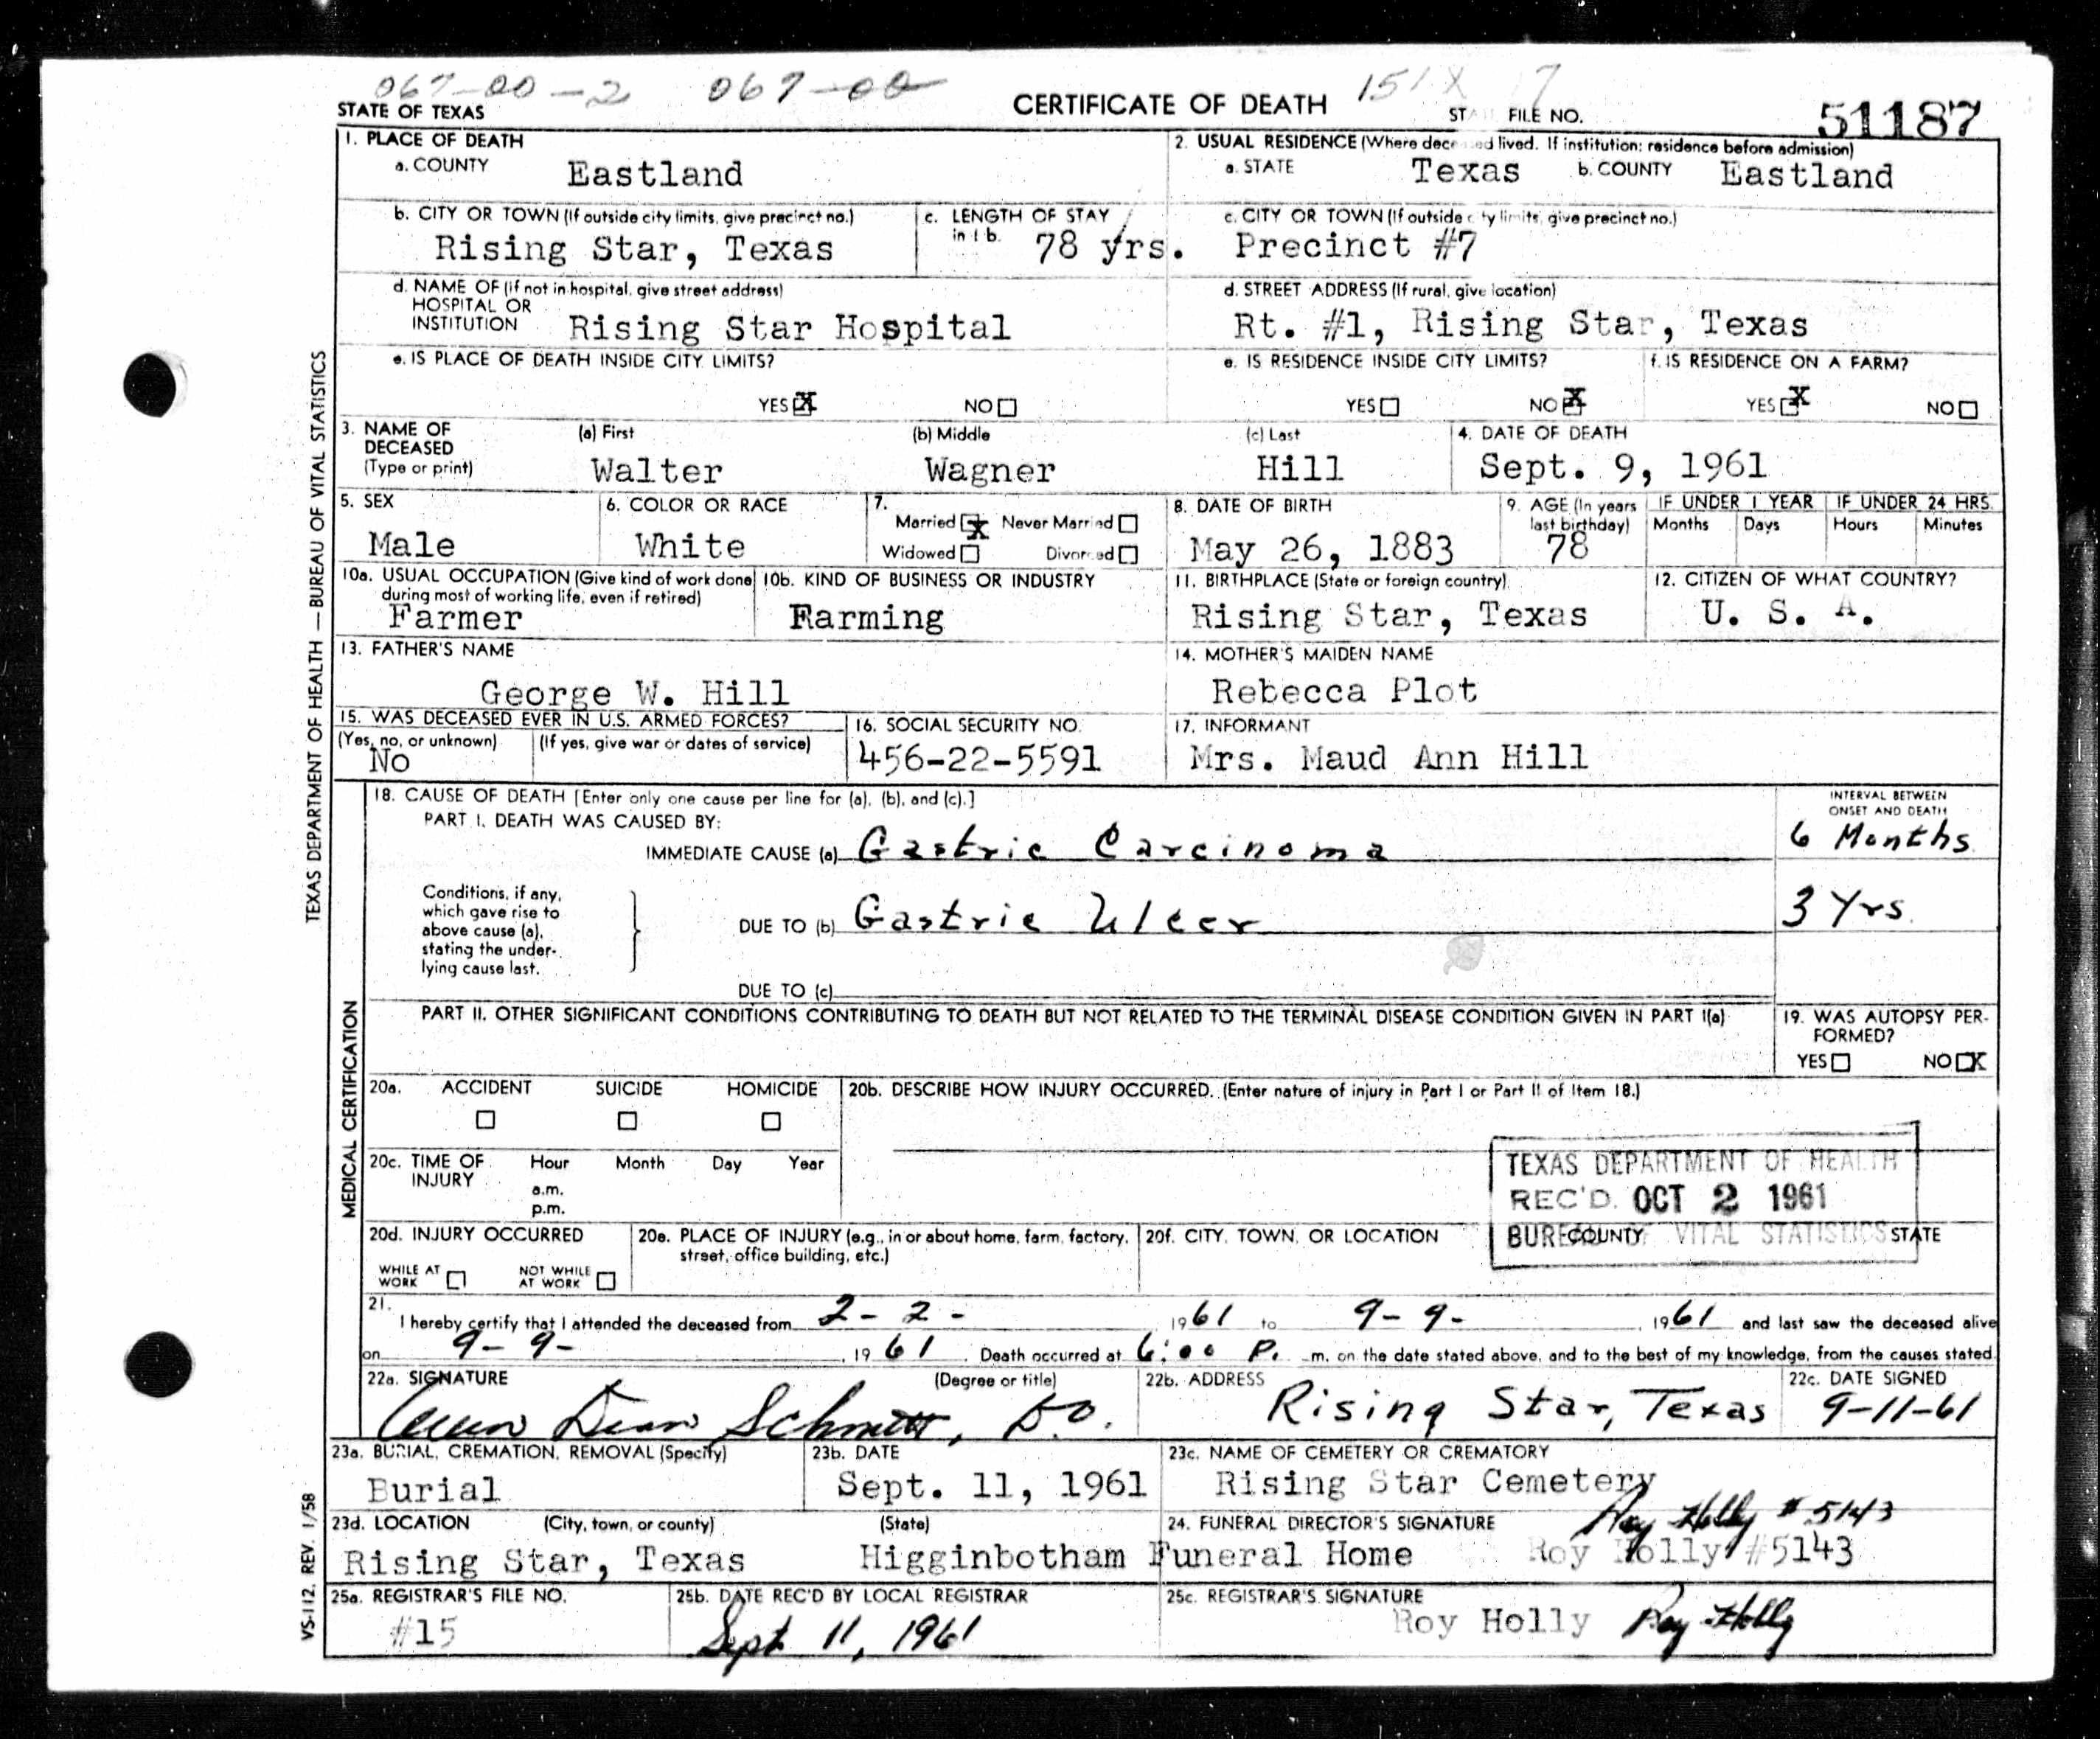 067-00-2 067-00 151X 7
STATE OF TEXAS CERTIFICATE OF DEATH FILE NO. 51187
1. PLACE OF DEATH
a. COUNTY Eastland
2. USUAL RESIDENCE (Where lived. If institution: residence before admission)
a. STATE Texas b. COUNTY Eastland
b. CITY OR TOWN (If outside city limits, give precinct no.)
Rising Star, Texas
c. LENGTH OF STAY
in 1 b. 78 yrs.
c. CITY OR TOWN (If outside limits, give precinct no.)
Precinct #7
d. NAME OF (if not in hospital, give street address)
HOSPITAL OR
INSTITUTION Rising Star Hospital
d. STREET ADDRESS (If rural, give location)
Rt. #1, Rising Star, Texas
e. IS PLACE OF DEATH INSIDE CITY LIMITS?
YES X NO
e. IS RESIDENCE INSIDE CITY LIMITS?
YES NO X
f. IS RESIDENCE ON A FARM?
YES X NO
3. NAME OF
DECEASED
(Type or print)
(a) First (b) Middle (c) Last
Walter Wagner Hill
4. DATE OF DEATH
Sept. 9, 1961
5. SEX
Male
6. COLOR OR RACE
White
7.
Married X Never Married
Widowed Divorced
8. DATE OF BIRTH
May 26, 1883
9. AGE (In years
last birthday)
78
IF UNDER 1 YEAR
Months Days
IF UNDER 24 HRS.
Hours Minutes
10a. USUAL OCCUPATION (Give kind of work done
during most of working life, even if retired)
Farmer
10b. KIND OF BUSINESS OR INDUSTRY
Farming
11. BIRTHPLACE (State or foreign country)
Rising Star, Texas
12. CITIZEN OF WHAT COUNTRY?
U. S. A.
13. FATHER'S NAME
George W. Hill
14. MOTHER'S MAIDEN NAME
Rebecca Plot
15. WAS DECEASED EVER IN U.S. ARMED FORCES?
(Yes, no, or unknown) (If yes, give war or dates of service)
No
16. SOCIAL SECURITY NO.
456-22-5591
17. INFORMANT
Mrs. Maud Ann Hill
18. CAUSE OF DEATH [Enter only one cause per line for (a), (b), and (c).]
PART I. DEATH WAS CAUSED BY:
INTERVAL BETWEEN
ONSET AND DEATH
IMMEDIATE CAUSE (a) Gastric Carcinoma 6 Months
Conditions, if any,
which gave rise to
above cause (a),
stating the under-
lying cause last.
DUE TO (b) Gastric Ulcer 3 Yrs.
DUE TO (c)
PART II. OTHER SIGNIFICANT CONDITIONS CONTRIBUTING TO DEATH BUT NOT RELATED TO THE TERMINAL DISEASE CONDITION GIVEN IN PART I(a)
19. WAS AUTOPSY PER-
FORMED?
YES NO X
20a. ACCIDENT SUICIDE HOMICIDE
20b. DESCRIBE HOW INJURY OCCURRED. (Enter nature of injury in Part I or Part II of Item 18.)
20c. TIME OF
INJURY
Hour Month Day Year
a.m.
p.m.
TEXAS DEPARTMENT OF HEALTH
REC'D. OCT 2 1961
VITAL STATISTICS
20d. INJURY OCCURRED
WHILE AT
WORK
NOT WHILE
AT WORK
20e. PLACE OF INJURY (e.g., in or about home, farm, factory,
street, office building, etc.)
20f. CITY, TOWN, OR LOCATION COUNTY STATE
21.
I hereby certify that I attended the deceased from 2-2- 1961 to 9-9- , 1961 and last saw the deceased alive
on 9-9- , 1961 . Death occurred at 6:00 P. m. on the date stated above, and to the best of my knowledge, from the causes stated.
22a. SIGNATURE (Degree or title)
Dean Schmitt, D.O.
22b. ADDRESS
Rising Star, Texas
22c. DATE SIGNED
9-11-61
23a. BURIAL, CREMATION, REMOVAL (Specify)
Burial
23b. DATE
Sept. 11, 1961
23c. NAME OF CEMETERY OR CREMATORY
Rising Star Cemetery
23d. LOCATION (City, town, or county) (State)
Rising Star, Texas
24. FUNERAL DIRECTOR'S SIGNATURE Roy Holly #5143
Higginbotham Funeral Home Roy Holly #5143
25a. REGISTRAR'S FILE NO.
#15
25b. DATE REC'D BY LOCAL REGISTRAR
Sept. 11, 1961
25c. REGISTRAR'S SIGNATURE
Roy Holly Roy Holly
TEXAS DEPARTMENT OF HEALTH — BUREAU OF VITAL STATISTICS
MEDICAL CERTIFICATION
VS-112. REV. 1/58